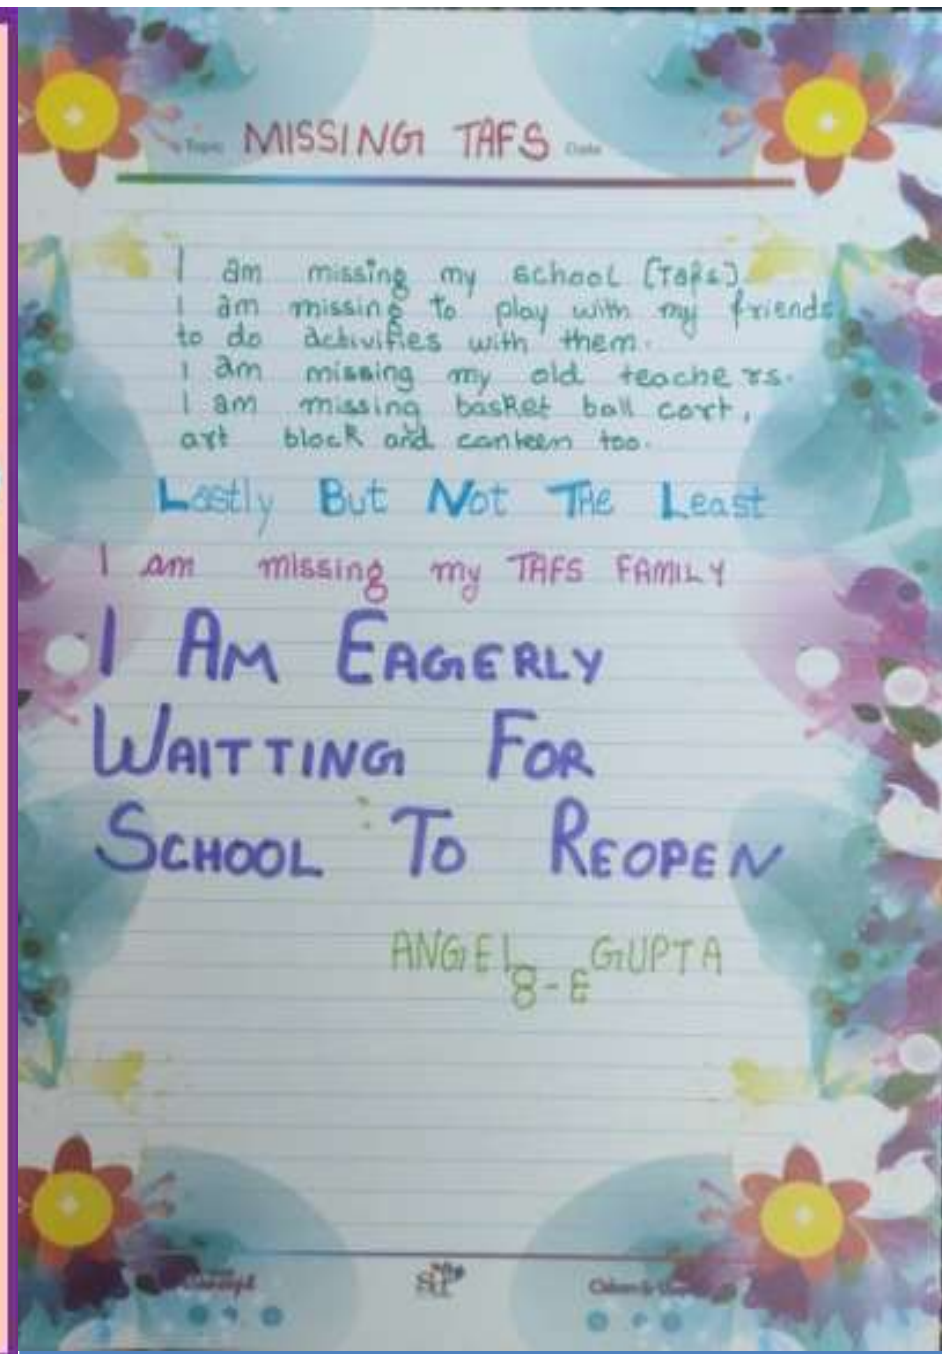 Topic MISSING TAFS Date
I am missing my school [Tafs].
I am missing to play with my friends
to do activities with them.
I am missing my old teachers.
I am missing basket ball cort,
art block and canteen too.
Lastly But Not The Least
I am missing my TAFS FAMILY
I AM EAGERLY
WAITTING FOR
SCHOOL TO REOPEN
ANGEL GUPTA
8-E